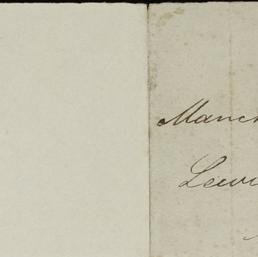 Manch
Lewi